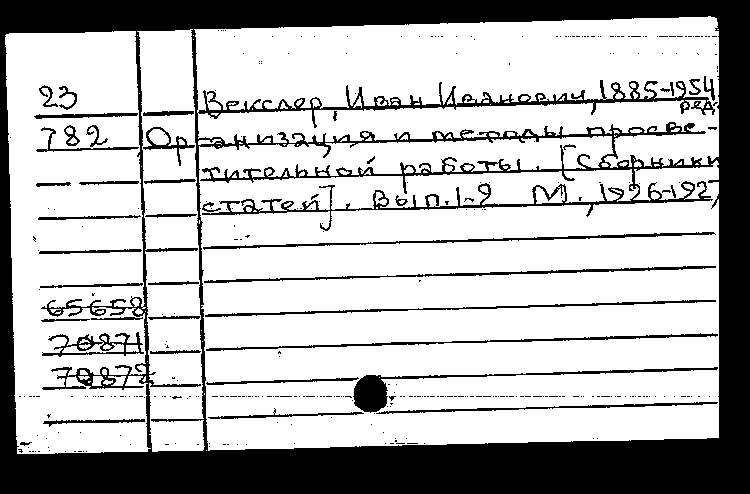 23 Векслер, Иван Иванович, 1885-1954
ред.
782 Организация и методы просве-
тительной работы. [Сборники
статей]. Вып.1-2 М., 1926-1927
65658
70871
70872